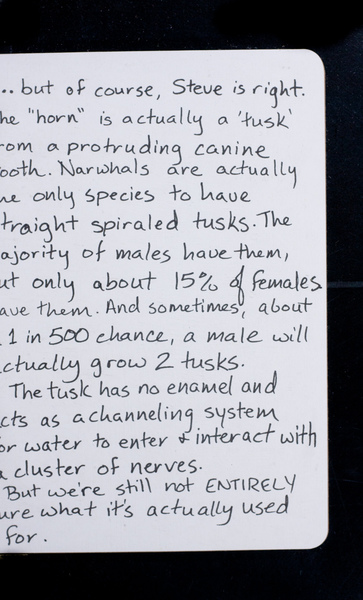 ... but of course, Steve is right.
he "horn" is actually a 'tusk'
rom a protruding canine
ooth. Narwhals are actually
he only species to have
traight spiraled tusks. The
ajority of males have them,
ut only about 15% of females
ave them. And sometimes, about
1 in 500 chance, a male will
ctually grow 2 tusks.
The tusk has no enamel and
cts as a channeling system
or water to enter & interact with
a cluster of nerves.
But we're still not ENTIRELY
ure what it's actually used
for.